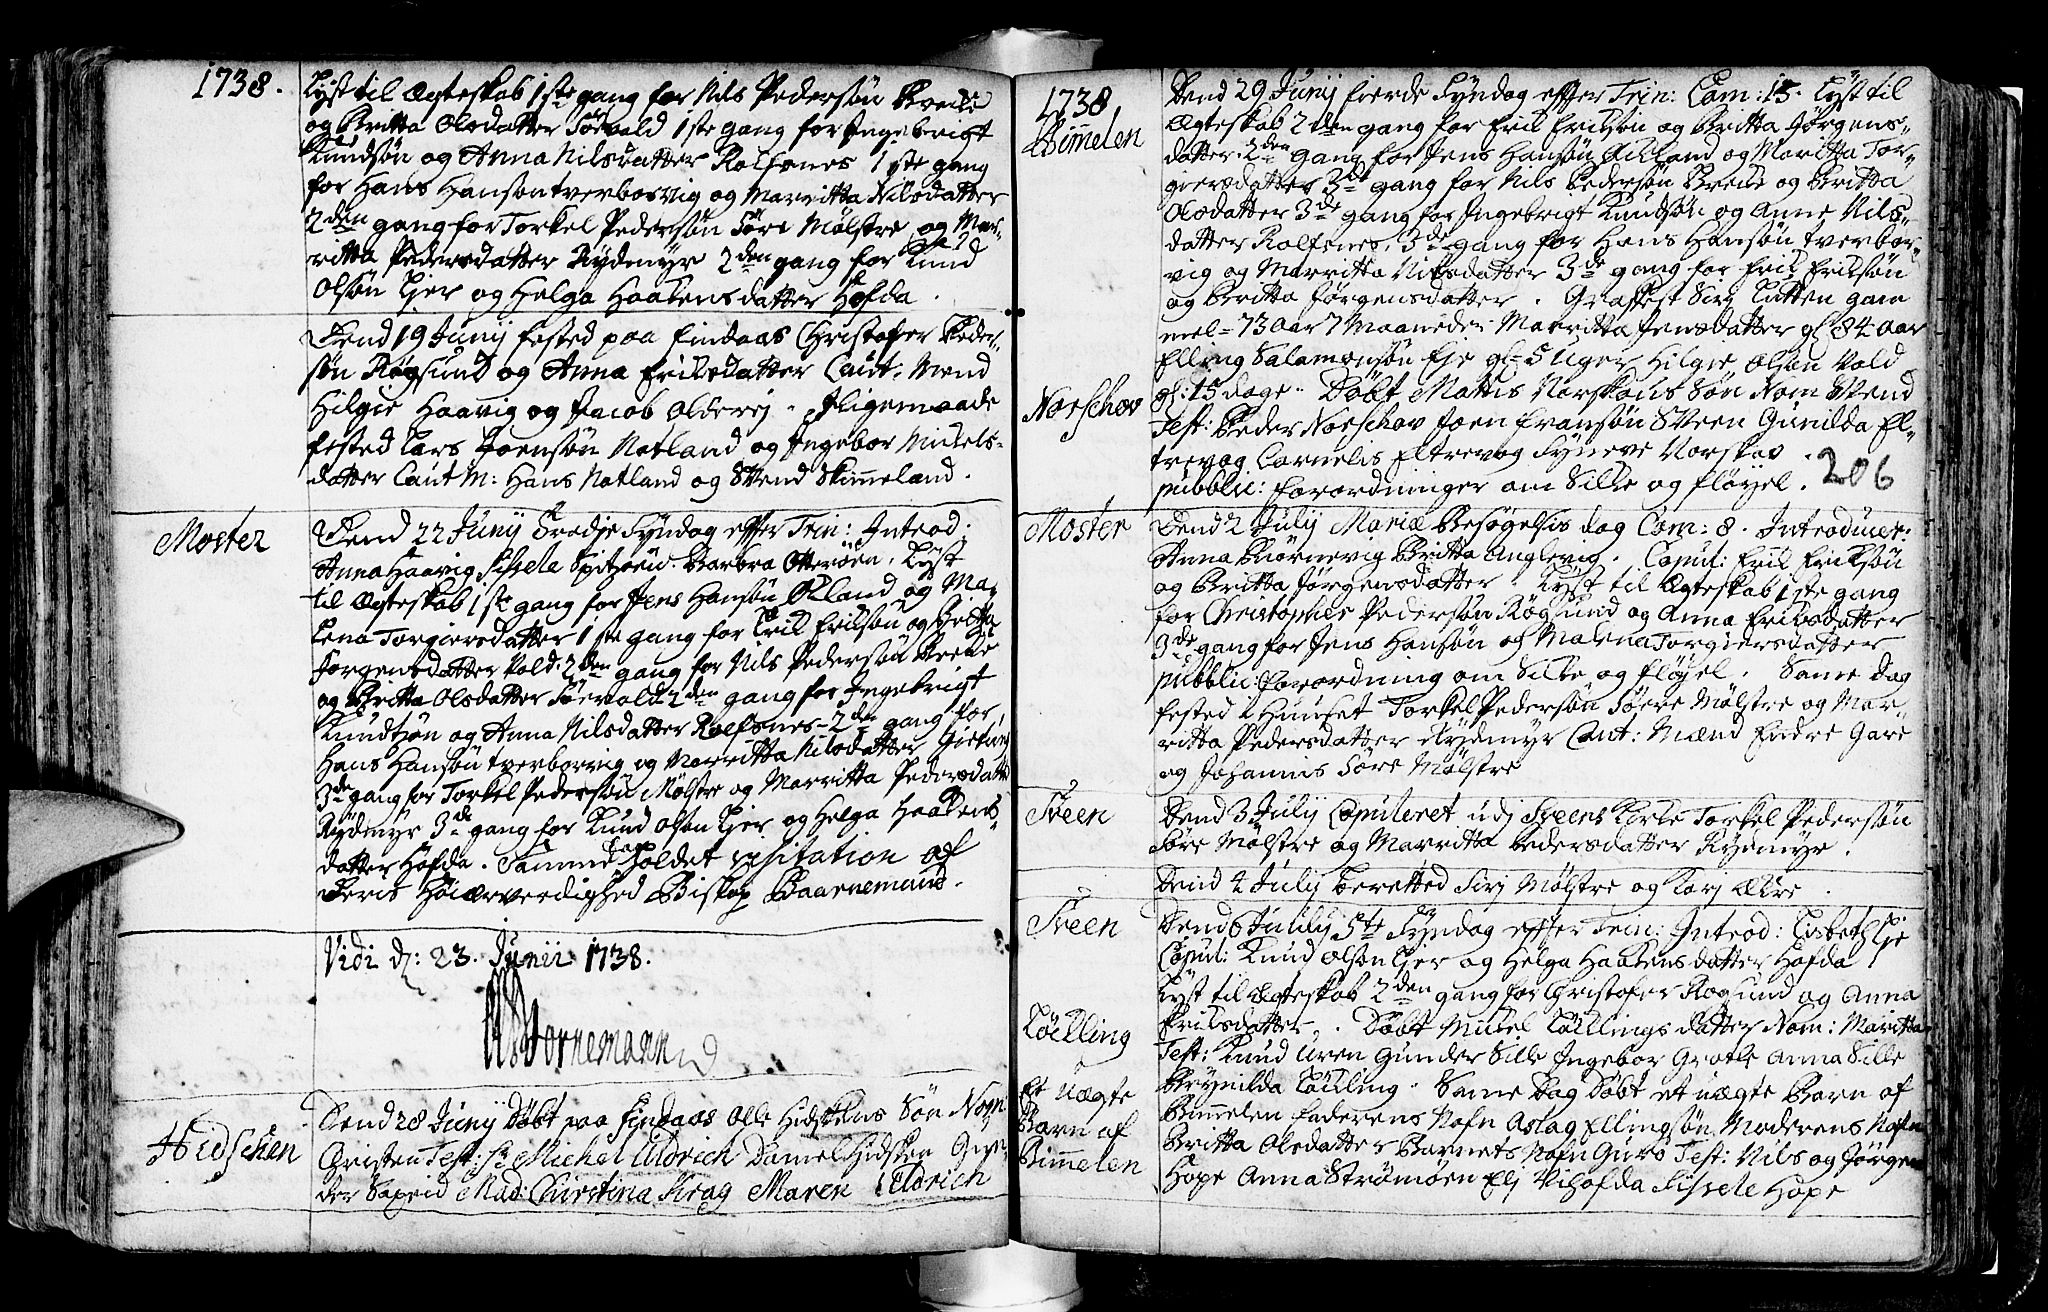 1738.
Lyst til Ægteskab 1ste gang for Nils Pedersøn Breche
og Britta Olsdatter Søevald 1ste gang for Ingebrigt
Knudsøn og Anna Nilsdatter Rolfsnes 1ste gang
for Hans Hansøn tverborvig og Marritta Nilsdatter
2den gang for Torkel Pedersøn Søre Mølstre og Mar-
ritta Pedersdatter Rydmyr 2den gang for Knud
Olsøn Tjer og Helga Haakensdatter Hofda.
Dend 19 Junij fested paa Findaas Christofer Peder-
søn Røgsund og Anna Eriksdatter Caut. Mend
Hilgie Haavig og Jacob Olderej. Iligemaade
fested Lars Joensøn Notland og Ingebor Mikels-
datter Caut M: Hans Notland og Svend Skimeland.
Moster
Dend 22 Junij Tredje Syndag effter Trin: Introd:
Anna Haavig Sissele Spitzøen. Barbra Otterøen. Lyst
til Ægteskab 1ste gang for Jens Hansøn Økland og Ma-
lena Torgiersdatter 1ste gang for Erik Eriksøn og Britta
Jørgensdatter Vold. 2den gang for Nils Pedersøn Breche
og Britta Olsdatter Søevald 2den gang for Ingebrigt
Knudsøn og Anna Nilsdatter Rolfsnes - 2den gang for
Hans Hansøn tverborvig og Marritta Nilsdatter
3de gang for Torkel Pedersøn Mølstre og Marritta Pedersdatter
Rydmyr 3de gang for Knud Olsøn Tjer og Helga Haakens-
datter Hofda. Samme Dag holdet visitation af
Deris Høiærverdighed Biskop Baarnemand.
Vidi d: 23. Junii 1738.
Bornemann
Hidschen
Dend 28 Junij Døbt paa Findaas Olle Hidskens Søn Nom
Christen Test: Sr Michel Uldrich Daniel Hidsken Gun-
der Mad: Christina Krag Maren Uldrich
1738
Bimelen
Dend 29 Junij fierde Syndag effter Trin: Com: 15. Lyst til
Ægteskab 2den gang for Erik Eriksøn og Britta Jørgens-
datter. 2den gang for Jens Hansøn Økland og Maritta Tor-
giersdatter 3de gang for Nils Pedersøn Breche og Britta
Olsdatter 3de gang for Ingebrigt Knudsøn og Anne Nils-
datter Rolfsnes. 3de gang for Hans Hansøn tverbor-
vig og Marritta Nilsdatter 3de gang for Erik Eriksøn
og Britta Jørgensdatter. Graffest Siri Lutten gam
mel = 73 Aar 7 Maaneder Marritta Jensdatter gl 84 Aar
Elling Salamonsøn Eje gl = 5 Uger Hilgie Olsøn Vold
gl: 15 dage. Døbt Mattis Norskous Søn Nom Svend
Norschov
Test: Peder Norschov Joen Evansøn Sveen Gunilda El-
trevog Cornelis Eltrevog Syneve Norskov.
206
pubblic: forordninger om Silke og fløyel.
Moster
Dend 2 Julij Mariæ Besøgelsis dag Com: 8. Introducer:
Anna Biørnevig Britta Anglevig. Copul: Erik Eriksøn
og Britta Jørgensdatter. Lyst til Ægteskab 1ste gang
for Christopher Pedersøn Røgsund og Anna Eriksdatter
3de gang for Jens Hansøn og Malena Torgiersdatter
pubblic: forordning om Silke og fløyel. Same dag
fested i Huuset Torkel Pedersøn Søere Mølstre og Mar-
ritta Pedersdatter Rydmyr Caut: Mænd Endre Gare
og Johannis Søre Mølstre
Sveen
Dend 3 Julij Copuleret udj Sveens Kirke Torkel Pedersøn
Søre Mølstre og Marritta Pedersdatter Rydmyr.
Dend 4 Julij beretted Sirj Mølstre og Karj Økre.
Sveen
Dend 6 Julij 5te Syndag effter Trin: Introd: Lisbeth Eje
Copul: Knud Olsøn Tjer og Helga Haakensdatter Hofda
Lyst til Ægteskab 2den gang for Christofer Rogsund og Anna
Køckling
Eriksdatter. Døbt Mickel Køcklings datter Nom: Maritta
Test: Knud Uren Gunder Sille Ingebor Grotle Anna Sille
Brynilda Køcling. Same Dag Døbt et uægte Barn af
Et Uægte
Barn af
Bimelen
Bimelen Faderens Nafn Aslag Ellingsøn Moderens Nafn
Britta Olsdatter Barnets Nafn Guro Test: Nils og Jørgen
Hope Anna Strømøen Elj Vihofda Sissele Hope